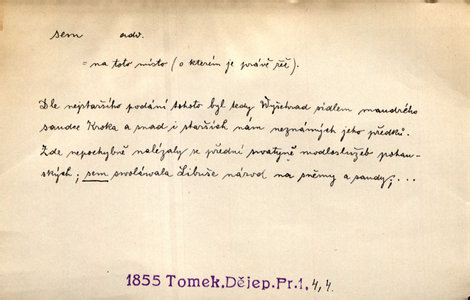 sem adv.
= na toto místo (o kterém je právě řeč).
Dle nejstaršího podání tohoto byl tedy Wyšehrad sídlem maudrého
saudce Kroka a snad i starších nám neznámých jeho předků.
Zde nepochybně nalézaly se přední swatyně modloslužeb pohan-
ských; sem swoláwala Libuše národ na sněmy a saudy; ...
1855 Tomek, Dějep. Pr. 1, 4, 4.